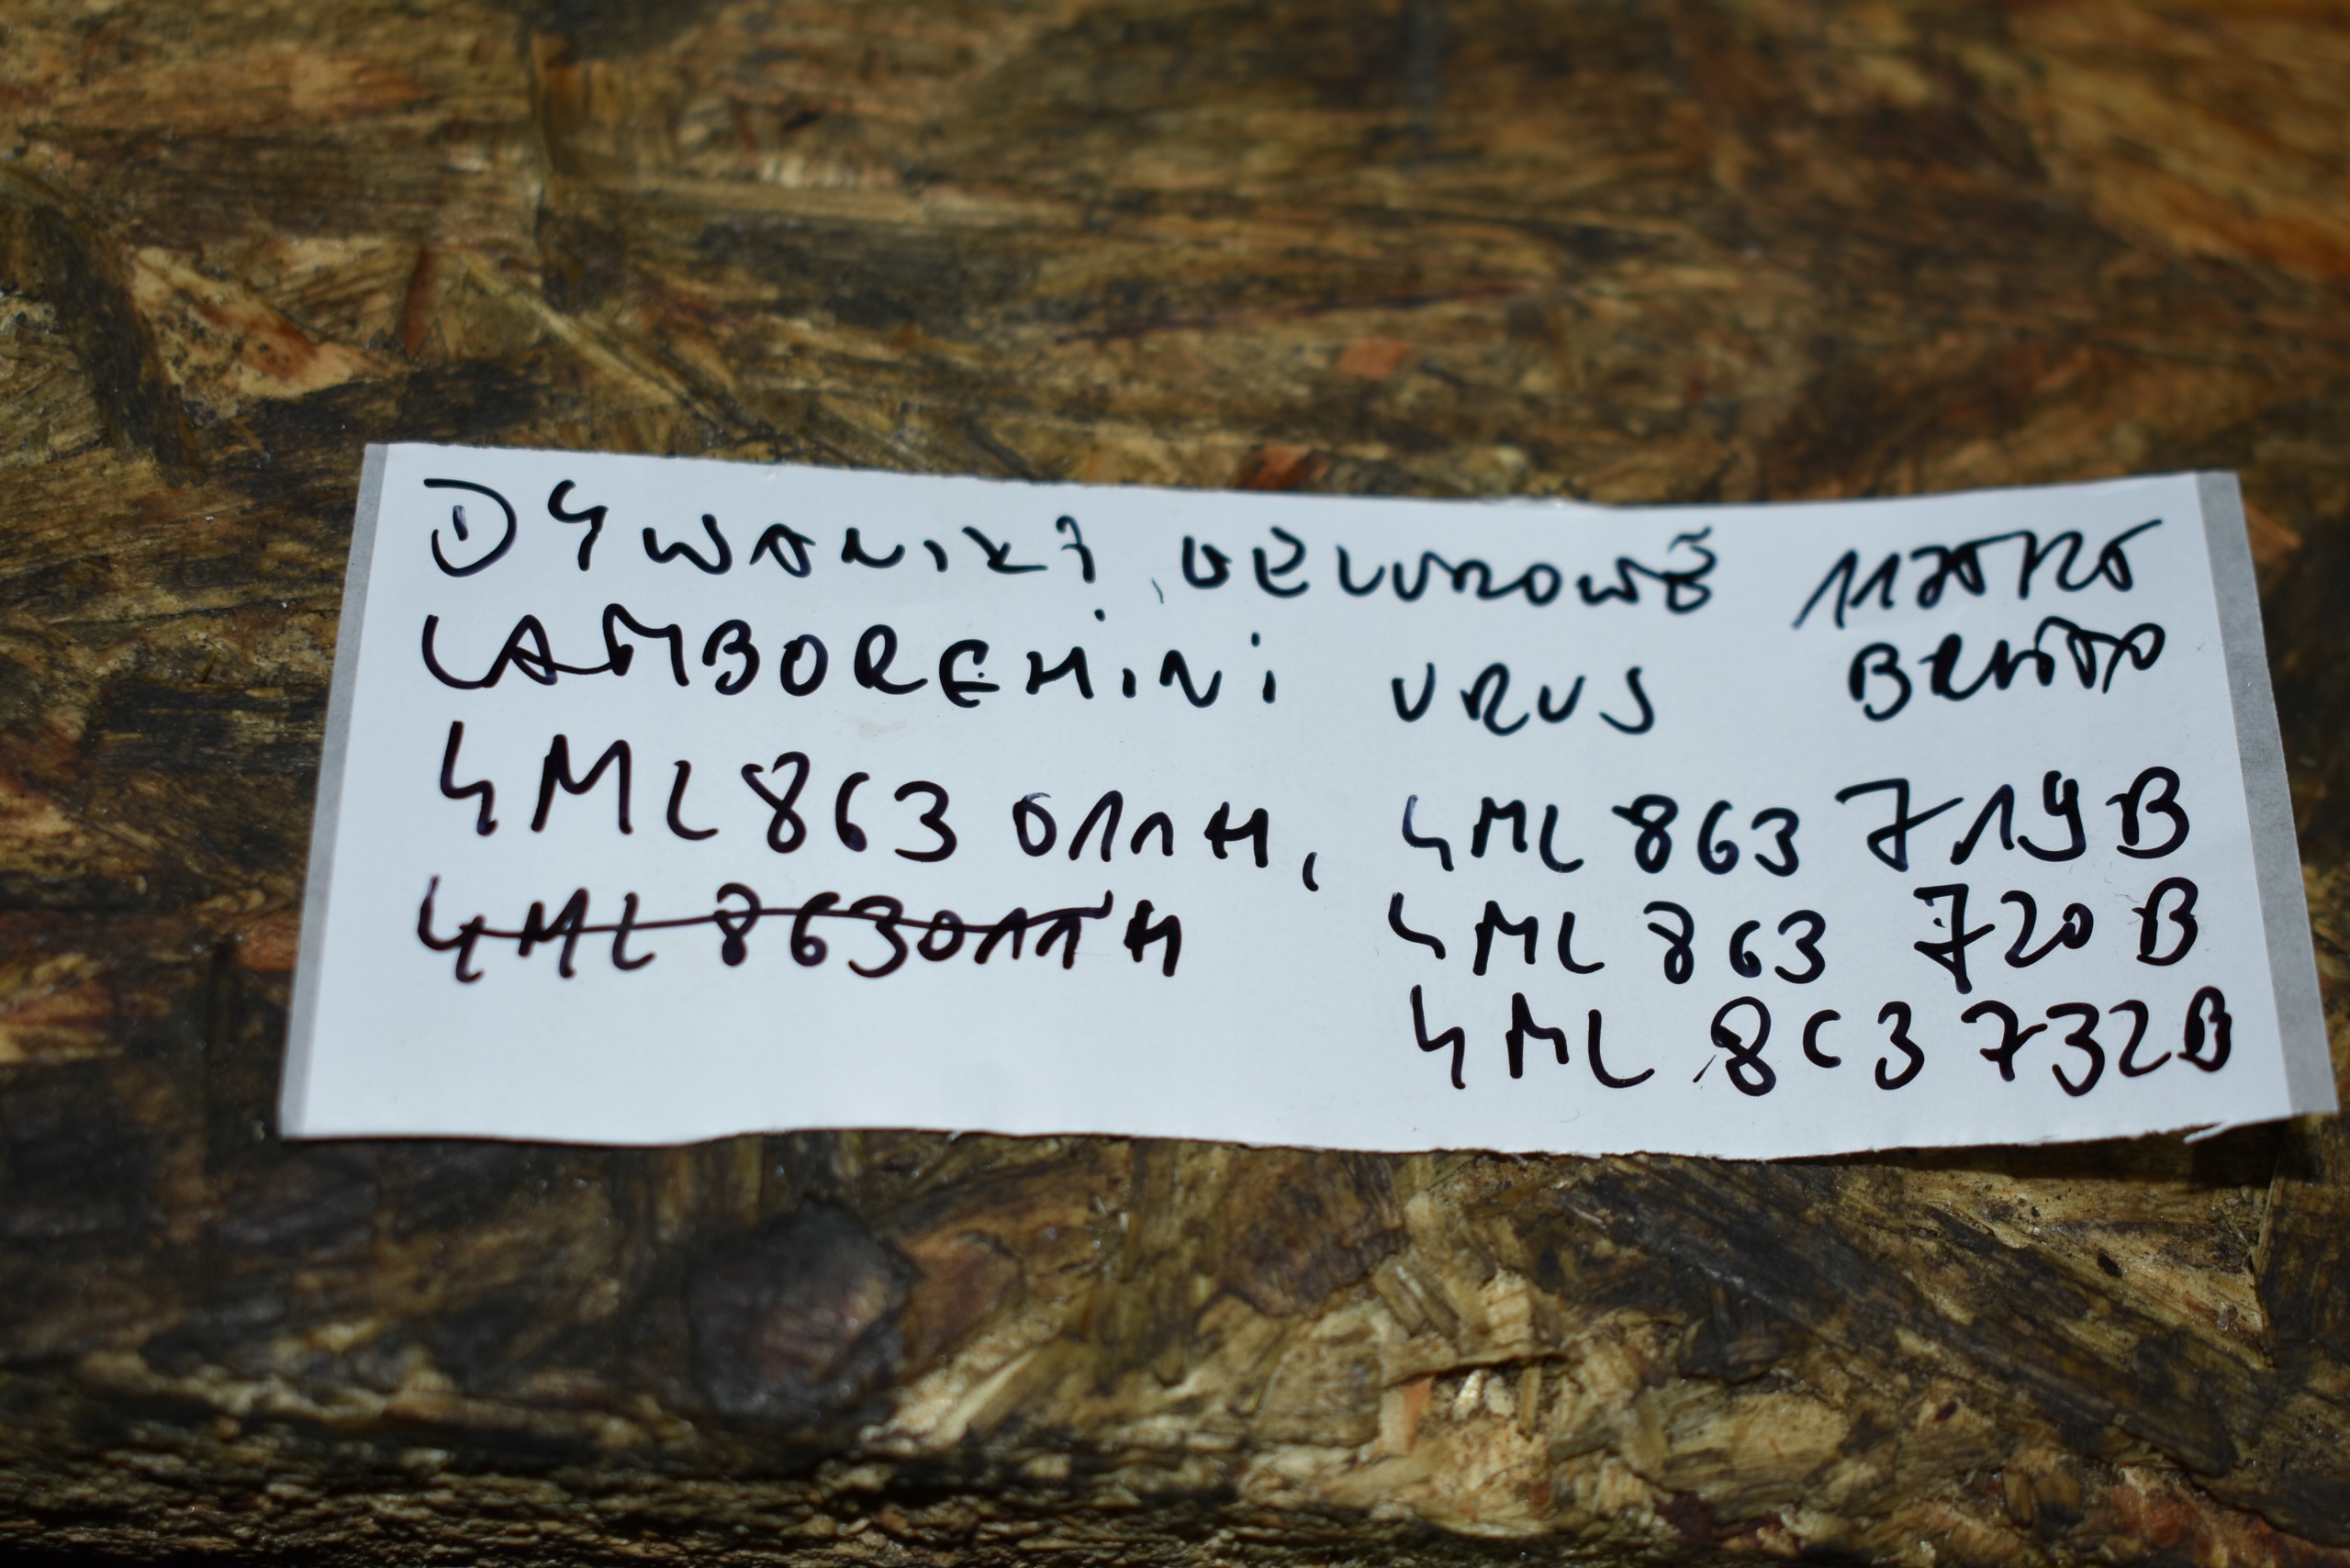 DYWANIKI WELUROWE
LAMBORGHINI URUS BRUTTO
4ML863 011H, 4ML 863 719B
4ML 863011H 4ML 863 720 B
4ML 863 732B